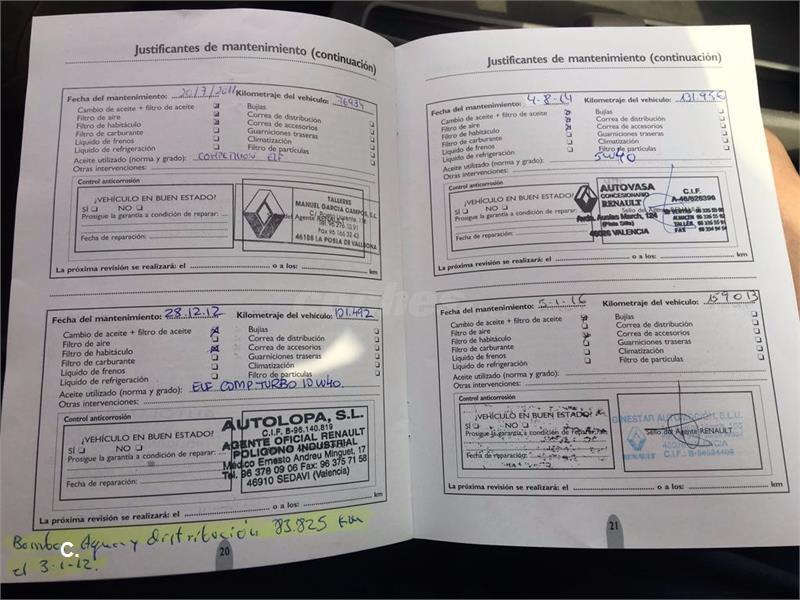 Justificantes de mantenimiento (continuación)
Fecha del mantenimiento: 20/7/2011 Kilometraje del vehículo: 76934
Cambio de aceite + filtro de aceite
Filtro de aire
Filtro de habitáculo
Filtro de carburante
Líquido de frenos
Líquido de refrigeración
Bujías
Correa de distribución
Correa de accesorios
Guarniciones traseras
Climatización
Filtro de partículas
Aceite utilizado (norma y grado): COMPETITION ELF
Otras intervenciones:
Control anticorrosión
¿VEHÍCULO EN BUEN ESTADO?
SÍ NO
Prosigue la garantía a condición de reparar:
Fecha de reparación:
RENAULT
TALLERES
MANUEL GARCIA CAMPOS, S.L.
46185 LA POBLA DE VALLBONA
La próxima revisión se realizará: el o a los: km
Fecha del mantenimiento: 28.12.12 Kilometraje del vehículo: 121.492
Cambio de aceite + filtro de aceite
Filtro de aire
Filtro de habitáculo
Filtro de carburante
Líquido de frenos
Líquido de refrigeración
Bujías
Correa de distribución
Correa de accesorios
Guarniciones traseras
Climatización
Filtro de partículas
Aceite utilizado (norma y grado): ELF COMP. TURBO 10W40
Otras intervenciones:
Control anticorrosión
¿VEHÍCULO EN BUEN ESTADO?
SÍ NO
Prosigue la garantía a condición de reparar:
Fecha de reparación:
AUTOLOPA, S.L.
C.I.F. B-96.140.819
AGENTE OFICIAL RENAULT
POLIGONO INDUSTRIAL
Médico Ernesto Andreu Minguet, 17
Tel. 96 376 09 06 Fax: 96 375 71 58
46910 SEDAVI (Valencia)
La próxima revisión se realizará: el o a los: km
Bomba Agua y distribución 83.825 Km
el 3-1-12.
C.
20
Justificantes de mantenimiento (continuación)
Fecha del mantenimiento: 4-8-14 Kilometraje del vehículo: 131.956
Cambio de aceite + filtro de aceite
Filtro de aire
Filtro de habitáculo
Filtro de carburante
Líquido de frenos
Líquido de refrigeración
Bujías
Correa de distribución
Correa de accesorios
Guarniciones traseras
Climatización
Filtro de partículas
Aceite utilizado (norma y grado): 5W40
Otras intervenciones:
Control anticorrosión
¿VEHÍCULO EN BUEN ESTADO?
SÍ NO
Prosigue la garantía a condición de reparar:
Fecha de reparación:
AUTOVASA
CONCESIONARIO
RENAULT
Avda. Ausias March, 124
46026 VALENCIA
C.I.F.
A-46/626396
La próxima revisión se realizará: el o a los: km
Fecha del mantenimiento: 5-1-16 Kilometraje del vehículo: 159013
Cambio de aceite + filtro de aceite
Filtro de aire
Filtro de habitáculo
Filtro de carburante
Líquido de frenos
Líquido de refrigeración
Bujías
Correa de distribución
Correa de accesorios
Guarniciones traseras
Climatización
Filtro de partículas
Aceite utilizado (norma y grado):
Otras intervenciones:
Control anticorrosión
¿VEHÍCULO EN BUEN ESTADO?
SÍ NO
Prosigue la garantía a condición de reparar:
Fecha de reparación:
GINESTAR AUTOMOCIÓN, S.L.U.
Sello del Agente RENAULT
RENAULT
La próxima revisión se realizará: el o a los: km
21